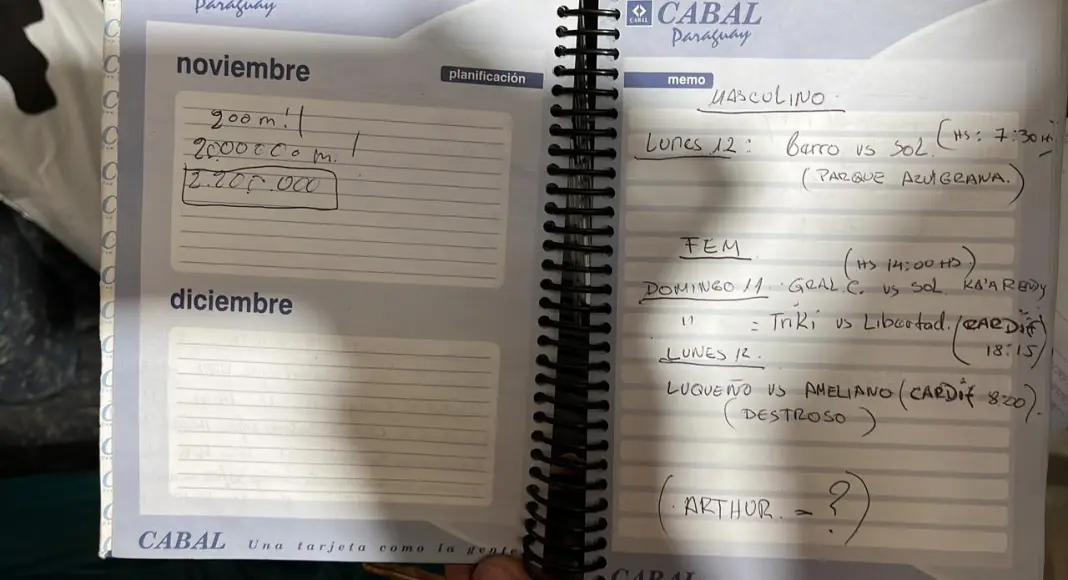 Paraguay
noviembre
planificación
200 m!!
2000000 m. !
2.200.000
diciembre
CABAL Una tarjeta como la gente
CABAL
CABAL
Paraguay
memo
MASCULINO
LUNES 12: Barro vs SOL. (HS: 7:30 H
(PARQUE AZULGRANA.)
FEM
(HS 14:00 HS)
DOMINGO 11 GRAL. C. vs SOL. KA'A REndy
" = TriKi vs Libertad. (CARDif
18:15)
LUNES 12.
LUQUEÑO VS AMELIANO (CARDif 8:20).
(DESTROSO)
(ARTHUR. - ?)
CABAL